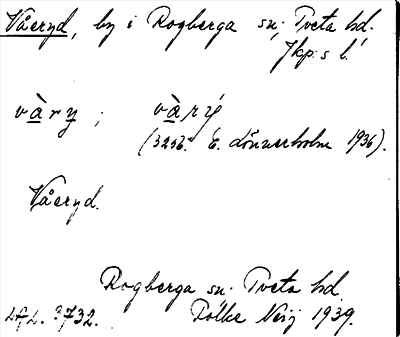 Våeryd, by i Rogberga sn. Tveta hd.
Jkp:s l.
vàry ; vàrý
(3256. E. Lönnerholm 1936).
Våeryd.
Rogberga sn. Tveta hd
3732.
Folke 1939.